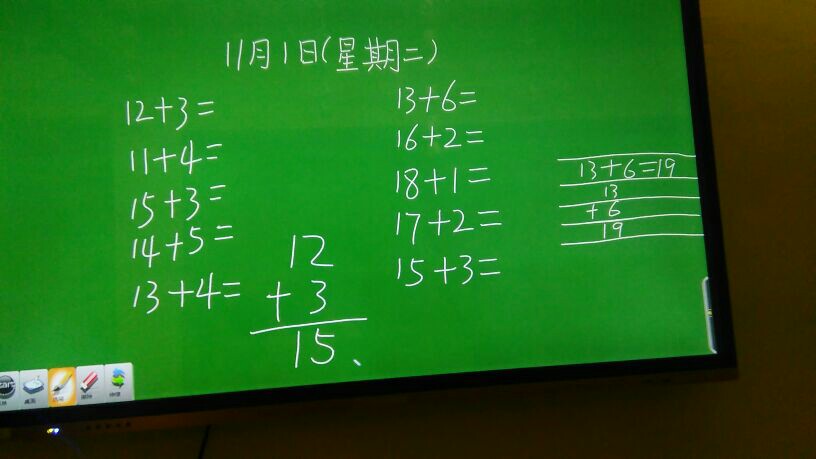 11月1日(星期二)
12+3=
11+4=
15+3=
14+5=
13+4=
12
+ 3
15
13+6=
16+2=
18+1=
17+2=
15+3=
13+6=19
13
+ 6
19
桌面